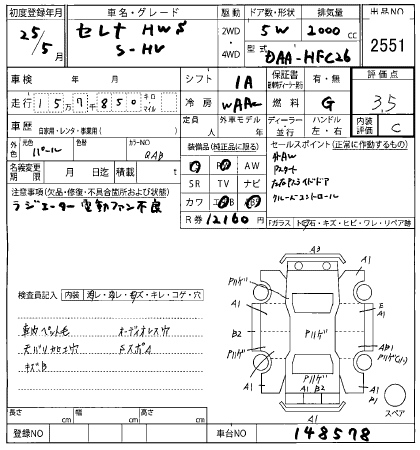 初度登録年月 車名・グレード 駆動 ドア数・形状 排気量 出品NO
25/5月 セレナ HWS S-HV 2WD 4WD 5W 2000cc 2551
型式 DAA-HFC26
車検 年 月 シフト IA 保証書 有・無 評価点
走行 157千850 キロ・マイル 冷房 WAAC 燃料 G 3.5
車歴 自家用・レンタ・事業用( ) 定員 人 外車モデル 年 ディーラー 並行 ハンドル 左・右 内装評価 C
外色 元色 パール 色替 カラーNO QAB
装備品(純正品に限る)
セールスポイント(正常に作動するもの)
名義変更期限 月 日迄 積載 t
SR TV ナビ
外AW
Pスタート
左右Pスライドドア
クルーズコントロール
注意事項(欠品・修復・不具合箇所および状態)
カワ
ラジエーター電動ファン不良
R券 12160 円
Fガラス トビ石・キズ・ヒビ・ワレ・リペア跡
検査員記入 内装 コゲ・穴
A3
A1
A1
Pハゲ
A1
E
A1
B2
Pハゲ
B2
Pハゲ
AB1
車内ペット毛 オーディオレス穴
天バリ
キズB
A1 B2
A1
A1
スペア
長さ cm 幅 cm 高さ cm
登録NO 車台NO 148578